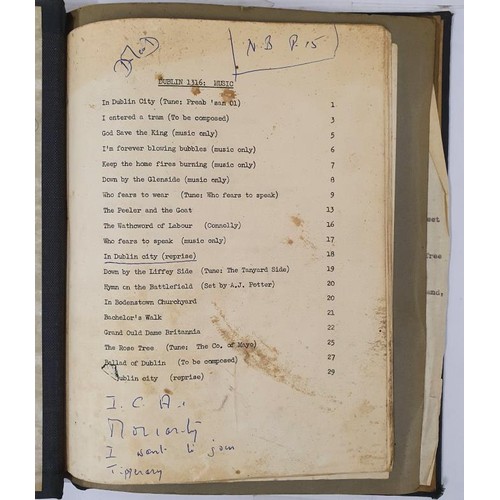 N.B P.15
DUBLIN 1316: MUSIC
In Dublin City (Tune: Preab 'san Ol) 1
I entered a tram (To be composed) 3
God Save the King (music only) 5
I'm forever blowing bubbles (music only) 6
Keep the home fires burning (music only) 7
Down by the Glenside (music only) 8
Who fears to wear (Tune: Who fears to speak) 9
The Peeler and the Goat 13
The Wathcword of Labour (Connolly) 16
Who fears to speak (music only) 17
In Dublin city (reprise) 18
Down by the Liffey Side (Tune: The Tanyard Side) 19
Hymn on the Battlefield (Set by A.J. Potter) 20
In Bodenstown Churchyard 20
Bachelor's Walk 21
Grand Ould Dame Britannia 22
The Rose Tree (Tune: The Co. of Mayo) 25
Ballad of Dublin (To be composed) 27
Dublin city (reprise) 29
I. C. A.
Moriarty
I want to join
Tipperary